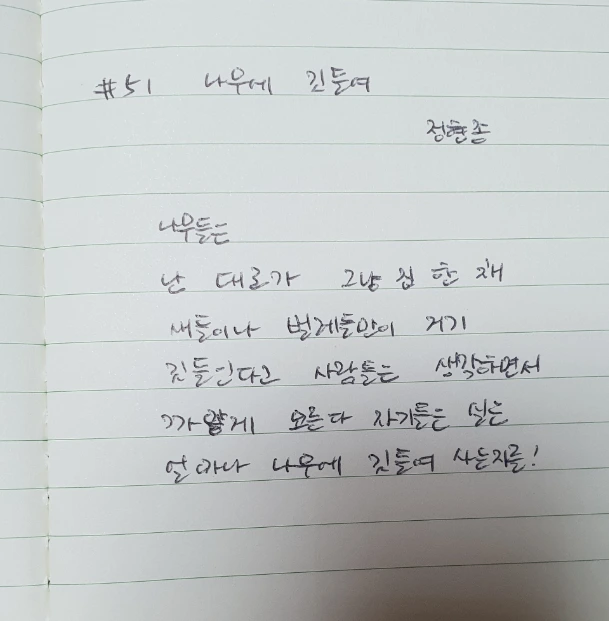 #51 나무에 깃들여
정현종
나무들은
난 대로가 그냥 집 한 채
새들이나 벌레들만이 거기
깃들인다고 사람들은 생각하면서
까맣게 모른다 자기들은 실은
얼마나 나무에 깃들여 사는지를!